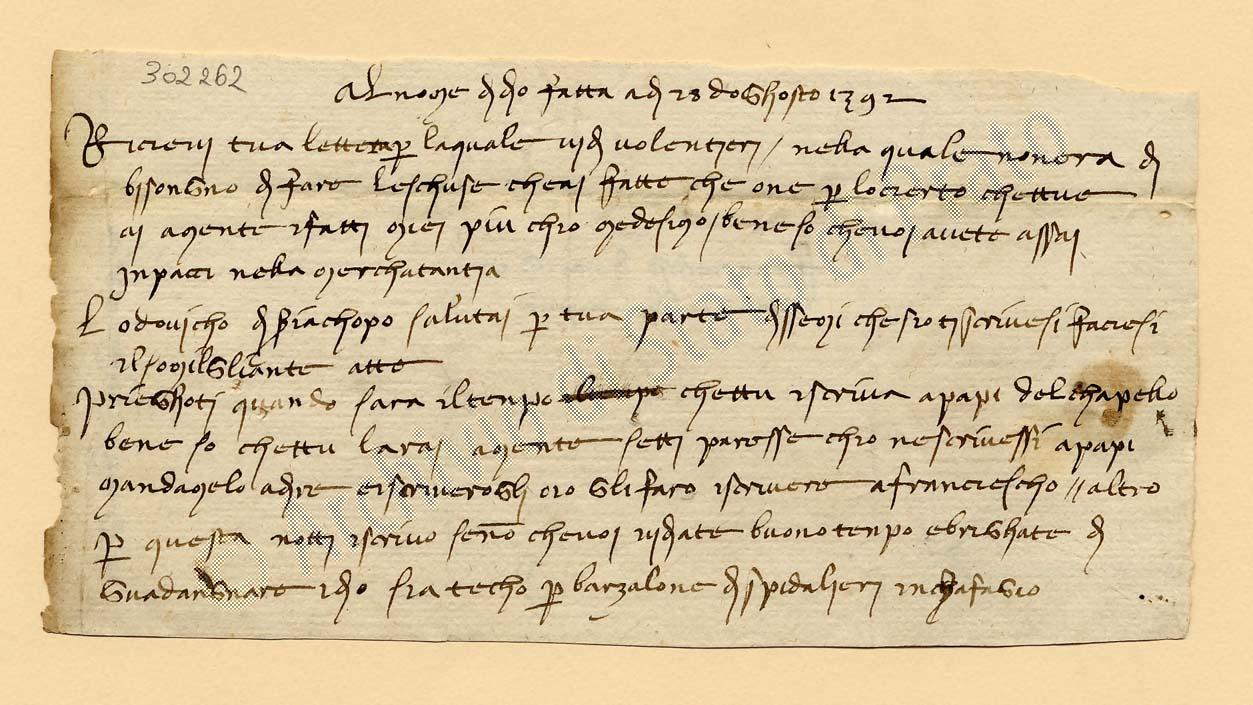 302262
Al nome di dio fatta adi 28 doghosto 1392
Ricievi tua lettera per laquale vidi volentieri / nella quale nonera di
bisongno di fare leschuse cheai fatte che one per locierto chettue
ai amente ifatti miei piu chio medesimo / bene so chevoi avete assai
inpacci nella merchatantia
Lodovicho di Giachopo salutai per tua parte dissemi chesio tiscrivesi faciesi
ilsomigliante atte
Prieghoti quando sara iltenpo chettu iscriva apapi delchapello
bene so chettu larai amente setti paresse chio nescrivessi apapi
mandamelo adire eiscriverogli oio glifaro iscrivere afranciescho // altro
per questa notti iscrivo seno chevoi vidiate buonotenpo ebrighate di
guadangnare idio sia techo per barzalone dispidalieri inchafagio
Archivio di Stato di Prato